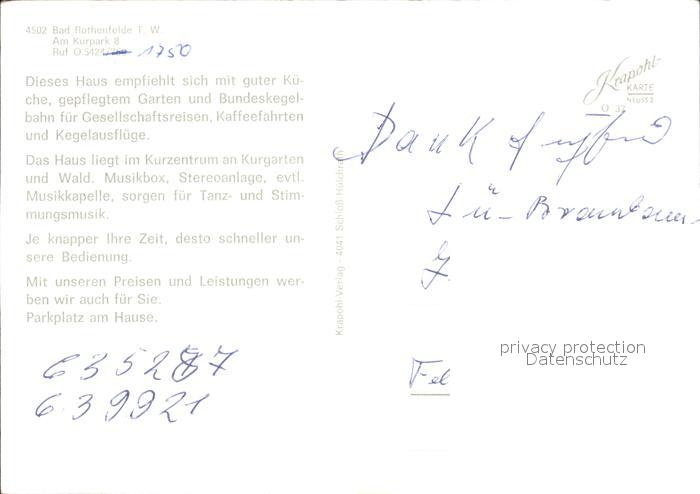 4502 Bad Rothenfelde T. W.
Am Kurpark 8
Ruf O 5424/ 1750
Dieses Haus empfiehlt sich mit guter Kü-
che, gepflegtem Garten und Bundeskegel-
bahn für Gesellschaftsreisen, Kaffeefahrten
und Kegelausflüge.
Das Haus liegt im Kurzentrum an Kurgarten
und Wald. Musikbox, Stereoanlage, evtl.
Musikkapelle, sorgen für Tanz- und Stim-
mungsmusik.
Je knapper Ihre Zeit, desto schneller un-
sere Bedienung.
Mit unseren Preisen und Leistungen wer-
ben wir auch für Sie.
Parkplatz am Hause.
635287
639921
Krapohl-Verlag - 4041 Schloß Hülchrath
Krapohl-
KARTE
NEUSS 2
Dank
Lü-
Fel
privacy protection
Datenschutz